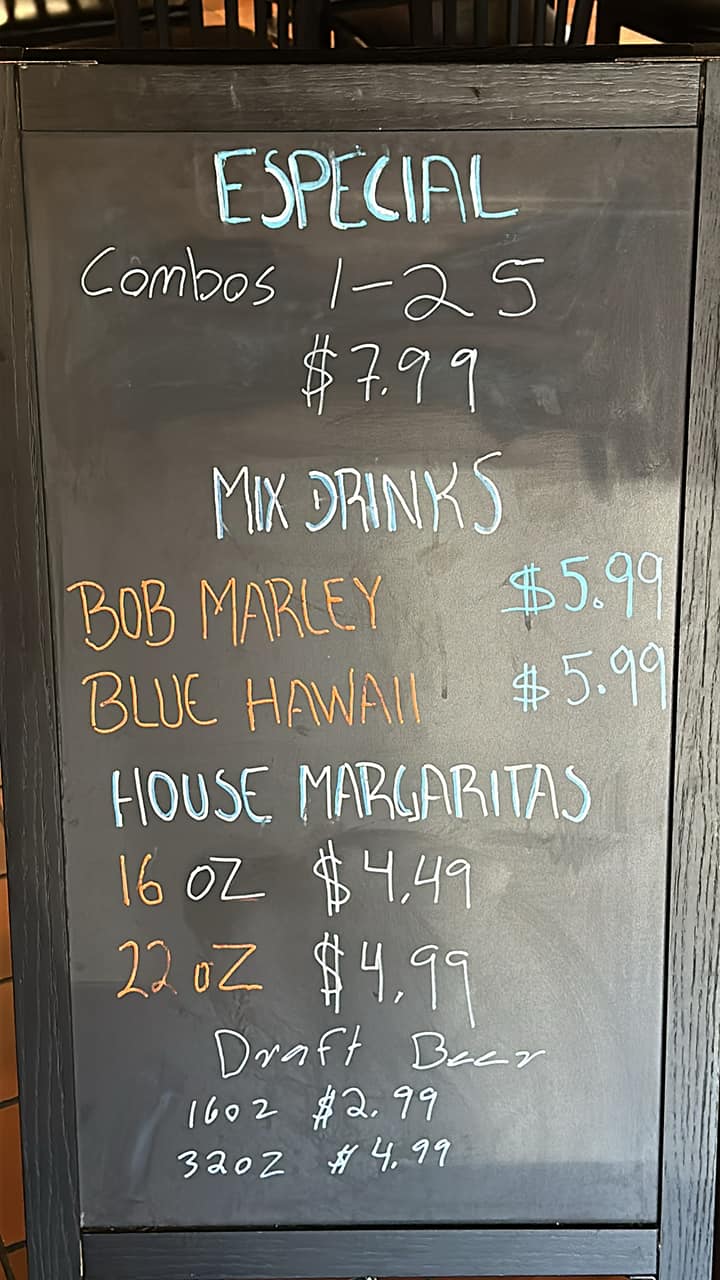 ESPECIAL
Combos 1-25
$7.99
MIX DRINKS
BOB MARLEY $5.99
BLUE HAWAII $5.99
HOUSE MARGARITAS
16 OZ $4.49
22 oZ $4.99
Draft Beer
16oz $2.99
32oz $4.99